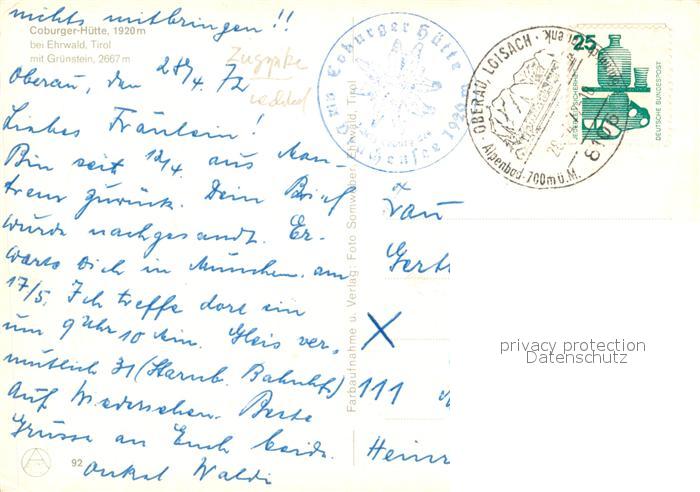 nichts mitbringen!!
Coburger-Hütte, 1920 m
bei Ehrwald, Tirol
mit Grünstein, 2667 m
Oberau, den 28/4. 72
Liebes Fräulein!
Bin seit 12/4. aus Mon-
treux zurück. Dein Brief
wurde nachgesandt. Er-
warte Dich in München am
17/5. Ich treffe dort ein
um 9 Uhr 10 Min. Gleis ver-
mutlich 31 (Starnb. Bahnhof)
Auf Wiedersehen. Beste
Grüsse an Euch beide.
Onkel Waldi
92
Farbaufnahme u. Verlag: Foto Somweber, Ehrwald, Tirol
Coburger Hütte
Drachensee 1920 m
OBERAU, LOISACH
Alpenbad · 700 m ü. M.
8106
25
JEDERZEIT SICHERHEIT
DEUTSCHE BUNDESPOST
Frau
Gert
X
111
Heinr
privacy protection
Datenschutz